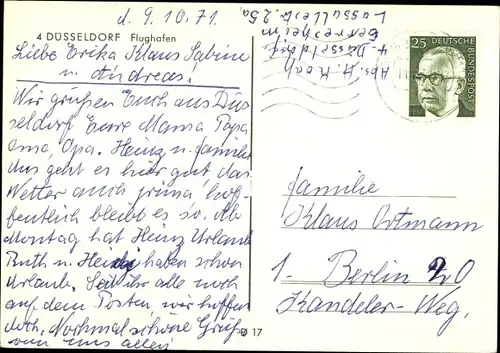 d. 9.10.71.
4 DÜSSELDORF Flughafen
Liebe Erika Klaus Sabine
u. Andreas.
Wir grüßen Euch aus Düs
seldorf Eure Mama Papa
Oma, Opa. Heinz u. Familie
Uns geht es hier gut das
Wetter auch prima, hof-
fentlich bleibt es so. Ab
Montag hat Heinz Urlaub
Ruth u. Heidi haben schon
Urlaub. Seid ihr alle noch
auf dem Posten, wir hoffen
doch. Nochmal schöne Grüße
von uns allen
D 17
Abs. H. Koch
4. Düsseldorf
Gerresheim
Lassallestr. 25a
25 DEUTSCHE
BUNDESPOST
Familie
Klaus Ortmann
1 - Berlin 20
Kandeler-Weg.